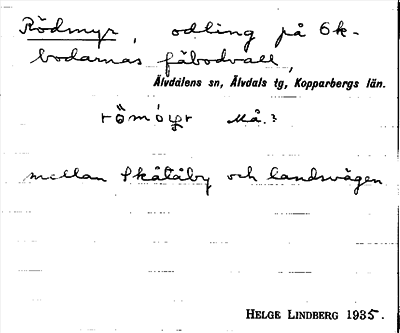 Rödmyr, odling på Ök-
bodarnas fäbodvall,
Älvdalens sn, Älvdals tg, Kopparbergs län.
Må.:
mellan Skåtåby och landsvägen
HELGE LINDBERG 1935.